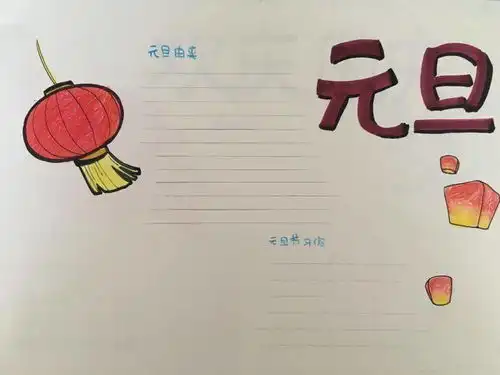 元旦
元旦由来
元旦节习俗